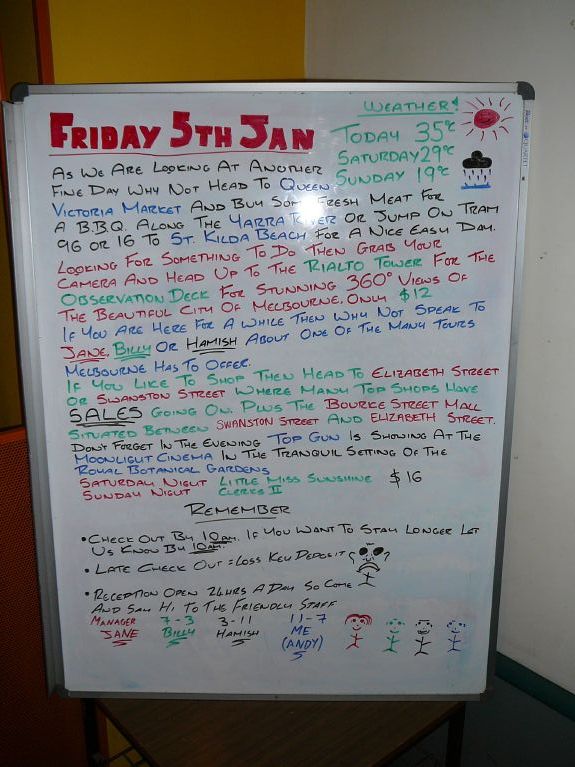 WEATHER!
FRIDAY 5TH JAN
TODAY 35°C
SATURDAY 29°C
SUNDAY 19°C
AS WE ARE LOOKING AT ANOTHER
FINE DAY WHY NOT HEAD TO QUEEN
VICTORIA MARKET AND BUY SOME FRESH MEAT FOR
A B.B.Q. ALONG THE YARRA RIVER OR JUMP ON TRAM
96 OR 16 TO ST. KILDA BEACH FOR A NICE EASY DAY.
LOOKING FOR SOMETHING TO DO THEN GRAB YOUR
CAMERA AND HEAD UP TO THE RIALTO TOWER FOR THE
OBSERVATION DECK FOR STUNNING 360° VIEWS OF
THE BEAUTIFUL CITY OF MELBOURNE, ONLY $12
IF YOU ARE HERE FOR A WHILE THEN WHY NOT SPEAK TO
JANE, BILLY OR HAMISH ABOUT ONE OF THE MANY TOURS
MELBOURNE HAS TO OFFER.
IF YOU LIKE TO SHOP THEN HEAD TO ELIZABETH STREET
OR SWANSTON STREET WHERE MANY TOP SHOPS HAVE
SALES GOING ON. PLUS THE BOURKE STREET MALL
SITUATED BETWEEN SWANSTON STREET AND ELIZABETH STREET.
DON'T FORGET IN THE EVENING TOP GUN IS SHOWING AT THE
MOONLIGHT CINEMA IN THE TRANQUIL SETTING OF THE
ROYAL BOTANICAL GARDENS
SATURDAY NIGHT LITTLE MISS SUNSHINE $16
SUNDAY NIGHT CLERKS II
REMEMBER
• CHECK OUT BY 10am. IF YOU WANT TO STAY LONGER LET
US KNOW BY 10am.
• LATE CHECK OUT = LOSS KEY DEPOSIT
• RECEPTION OPEN 24HRS A DAY SO COME
AND SAY HI TO THE FRIENDLY STAFF
MANAGER 7-3 3-11 11-7
JANE BILLY HAMISH ME
(ANDY)